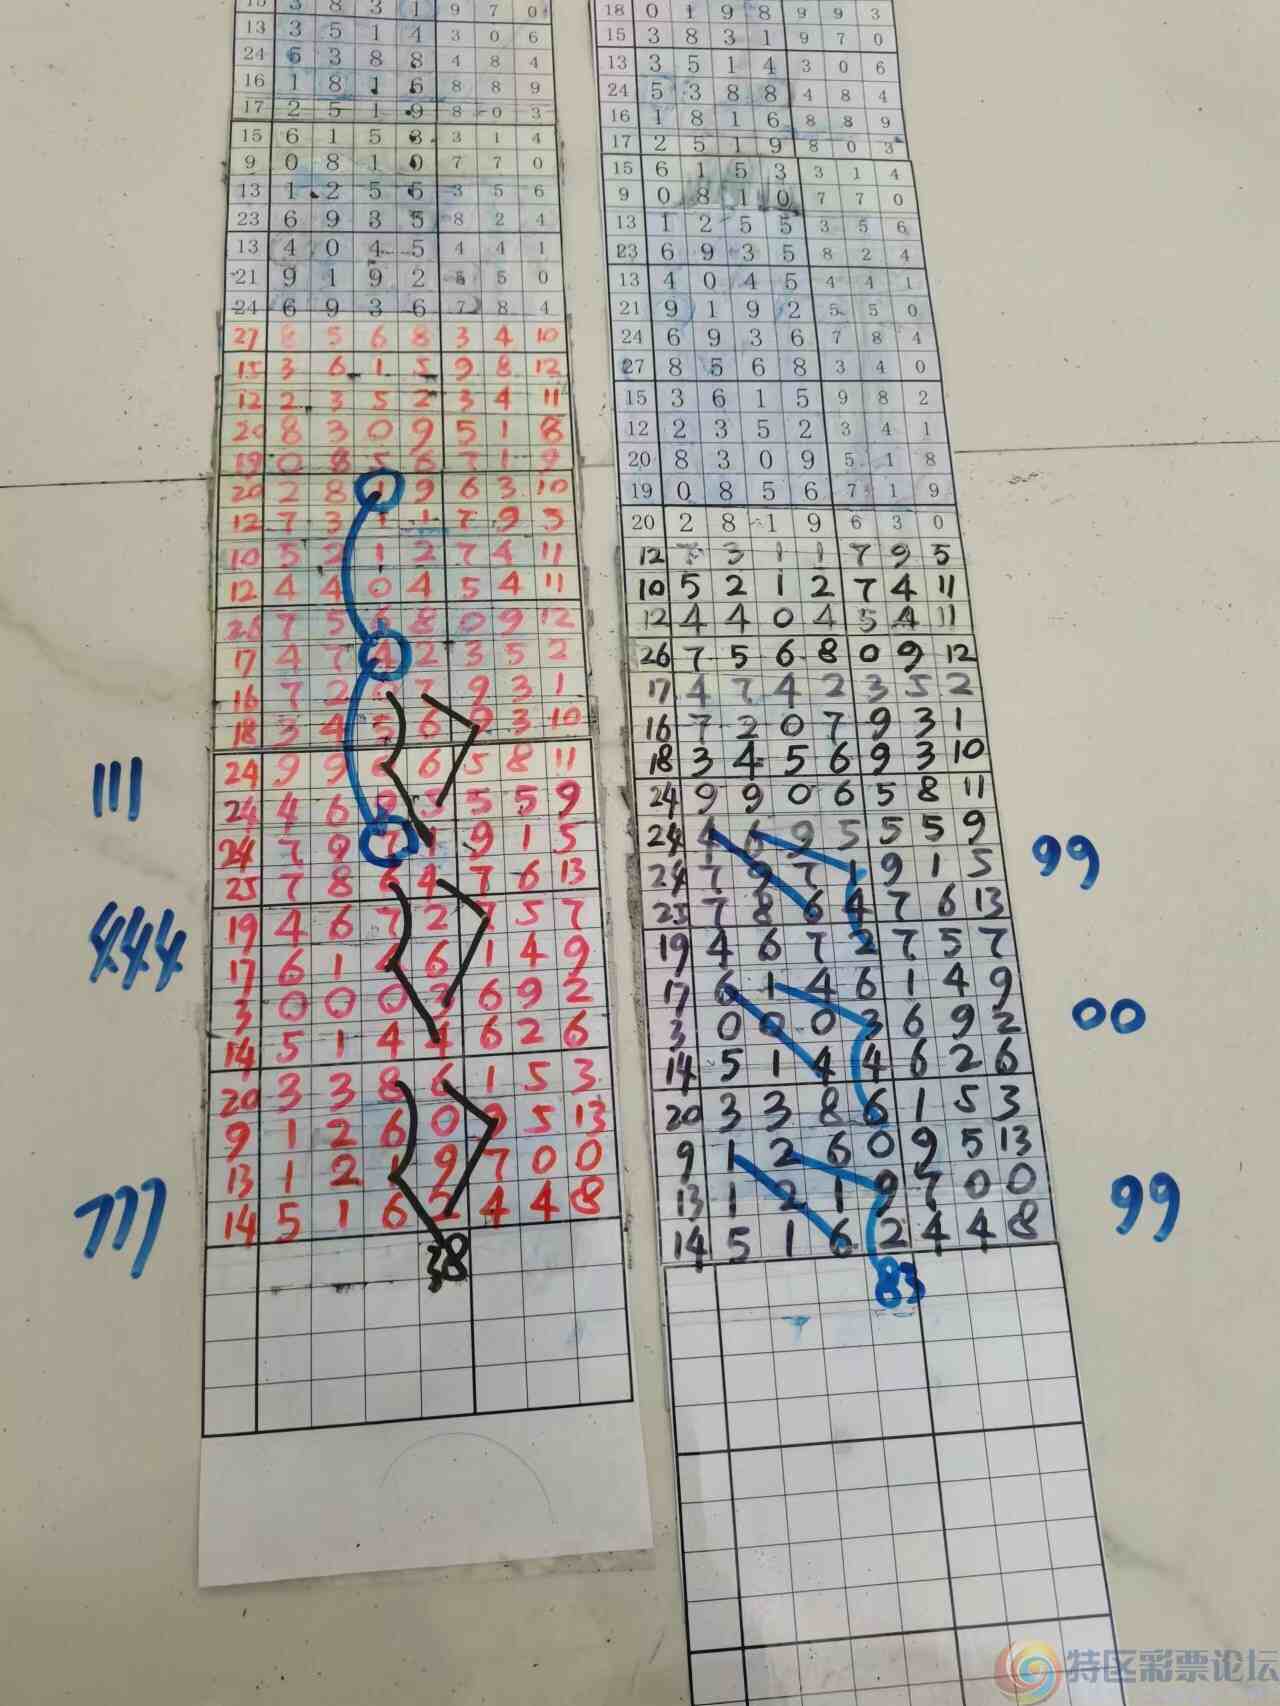 15 3 8 3 1 9 7 0
13 3 5 1 4 3 0 6
24 5 3 8 8 4 8 4
16 1 8 1 6 8 8 9
17 2 5 1 9 8 0 3
15 6 1 5 3 3 1 4
9 0 8 1 0 7 7 0
13 1 2 5 5 3 5 6
23 6 9 3 5 8 2 4
13 4 0 4 5 4 4 1
21 9 1 9 2 5 5 0
24 6 9 3 6 7 8 4
27 8 5 6 8 3 4 10
15 3 6 1 5 9 8 12
12 2 3 5 2 3 4 11
20 8 3 0 9 5 1 8
19 0 8 5 6 7 1 9
20 2 8 1 9 6 3 10
12 7 3 1 1 7 9 5
10 5 2 1 2 7 4 11
12 4 4 0 4 5 4 11
26 7 5 6 8 0 9 12
17 4 7 4 2 3 5 2
16 7 2 0 7 9 3 1
18 3 4 5 6 9 3 10
24 9 9 6 5 8 11
24 4 6 9 5 5 5 9
24 7 9 7 1 9 1 5
25 7 8 6 4 7 6 13
19 4 6 7 2 7 5 7
17 6 1 4 6 1 4 9
3 0 0 0 3 6 9 2
14 5 1 4 4 6 2 6
20 3 3 8 6 1 5 3
9 1 2 6 0 9 5 13
13 1 2 1 9 7 0 0
14 5 1 6 2 4 4 8
38
111
444
777
18 0 1 9 8 9 9 3
15 3 8 3 1 9 7 0
13 3 5 1 4 3 0 6
24 5 3 8 8 4 8 4
16 1 8 1 6 8 8 9
17 2 5 1 9 8 0 3
15 6 1 5 3 3 1 4
9 0 8 1 0 7 7 0
13 1 2 5 5 3 5 6
23 6 9 3 5 8 2 4
13 4 0 4 5 4 4 1
21 9 1 9 2 5 5 0
24 6 9 3 6 7 8 4
27 8 5 6 8 3 4 0
15 3 6 1 5 9 8 2
12 2 3 5 2 3 4 1
20 8 3 0 9 5 1 8
19 0 8 5 6 7 1 9
20 2 8 1 9 6 3 0
12 7 3 1 1 7 9 5
10 5 2 1 2 7 4 11
12 4 4 0 4 5 4 11
26 7 5 6 8 0 9 12
17 4 7 4 2 3 5 2
16 7 2 0 7 9 3 1
18 3 4 5 6 9 3 10
24 9 9 0 6 5 8 11
24 4 6 9 5 5 5 9
24 7 9 7 1 9 1 5
25 7 8 6 4 7 6 13
19 4 6 7 2 7 5 7
17 6 1 4 6 1 4 9
3 0 0 0 3 6 9 2
14 5 1 4 4 6 2 6
20 3 3 8 6 1 5 3
9 1 2 6 0 9 5 13
13 1 2 1 9 7 0 0
14 5 1 6 2 4 4 8
83
99
00
99
特区彩票论坛